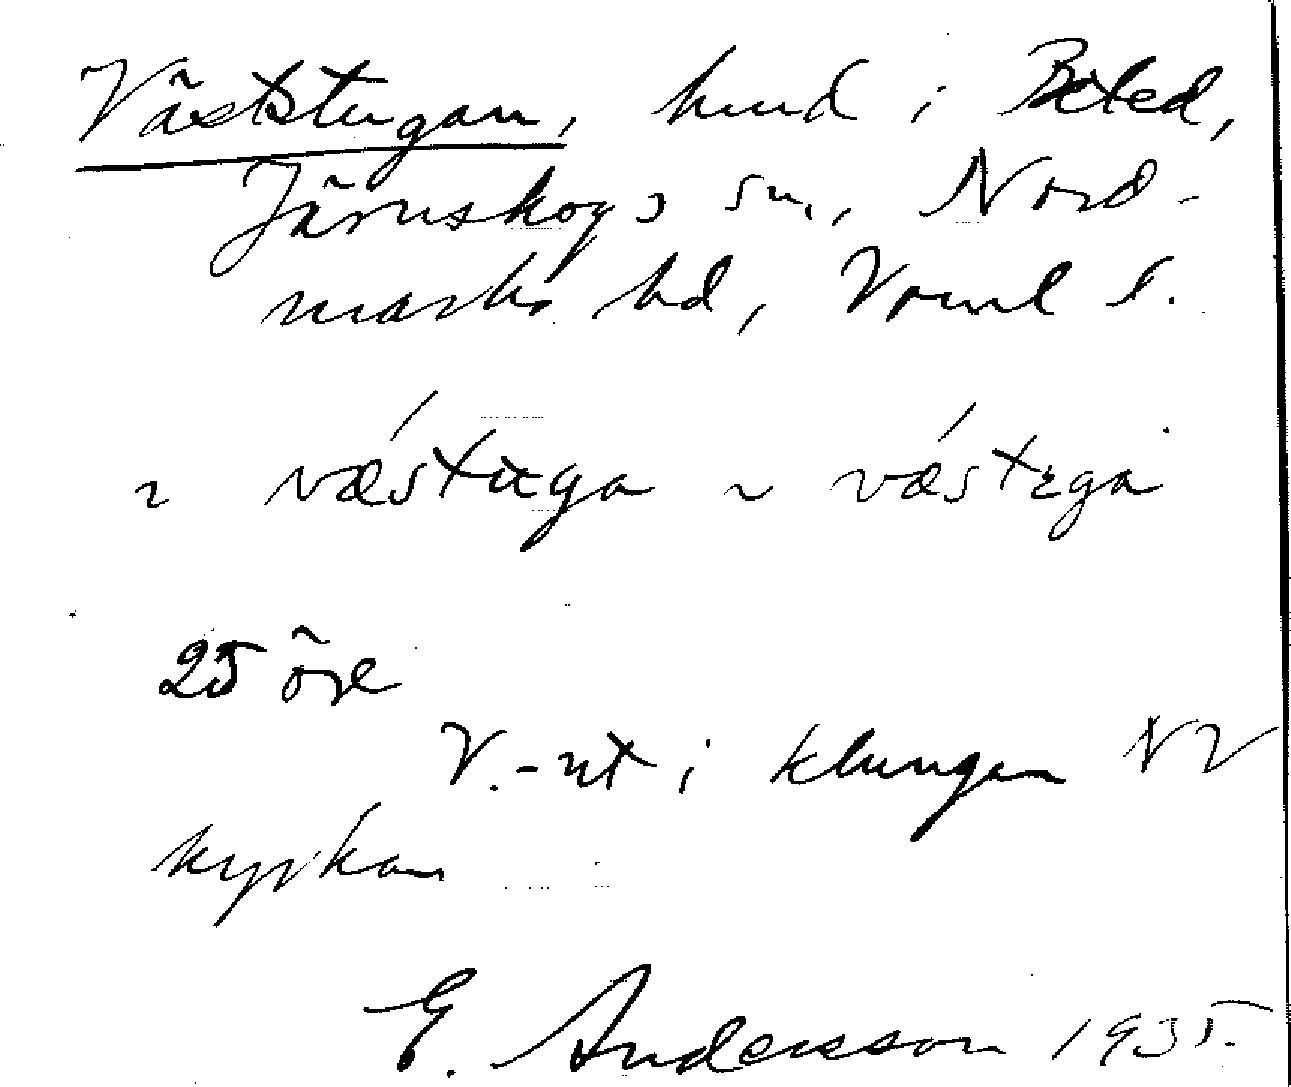 Väststugan, hmd i Beted,
Järnskogs sn., Nord-
marks hd, Vrml s.
~ væ´stuga ~ væ´stega
25 öre
V.-ut i klungan NV
kyrkan
E. Andersson 1935.